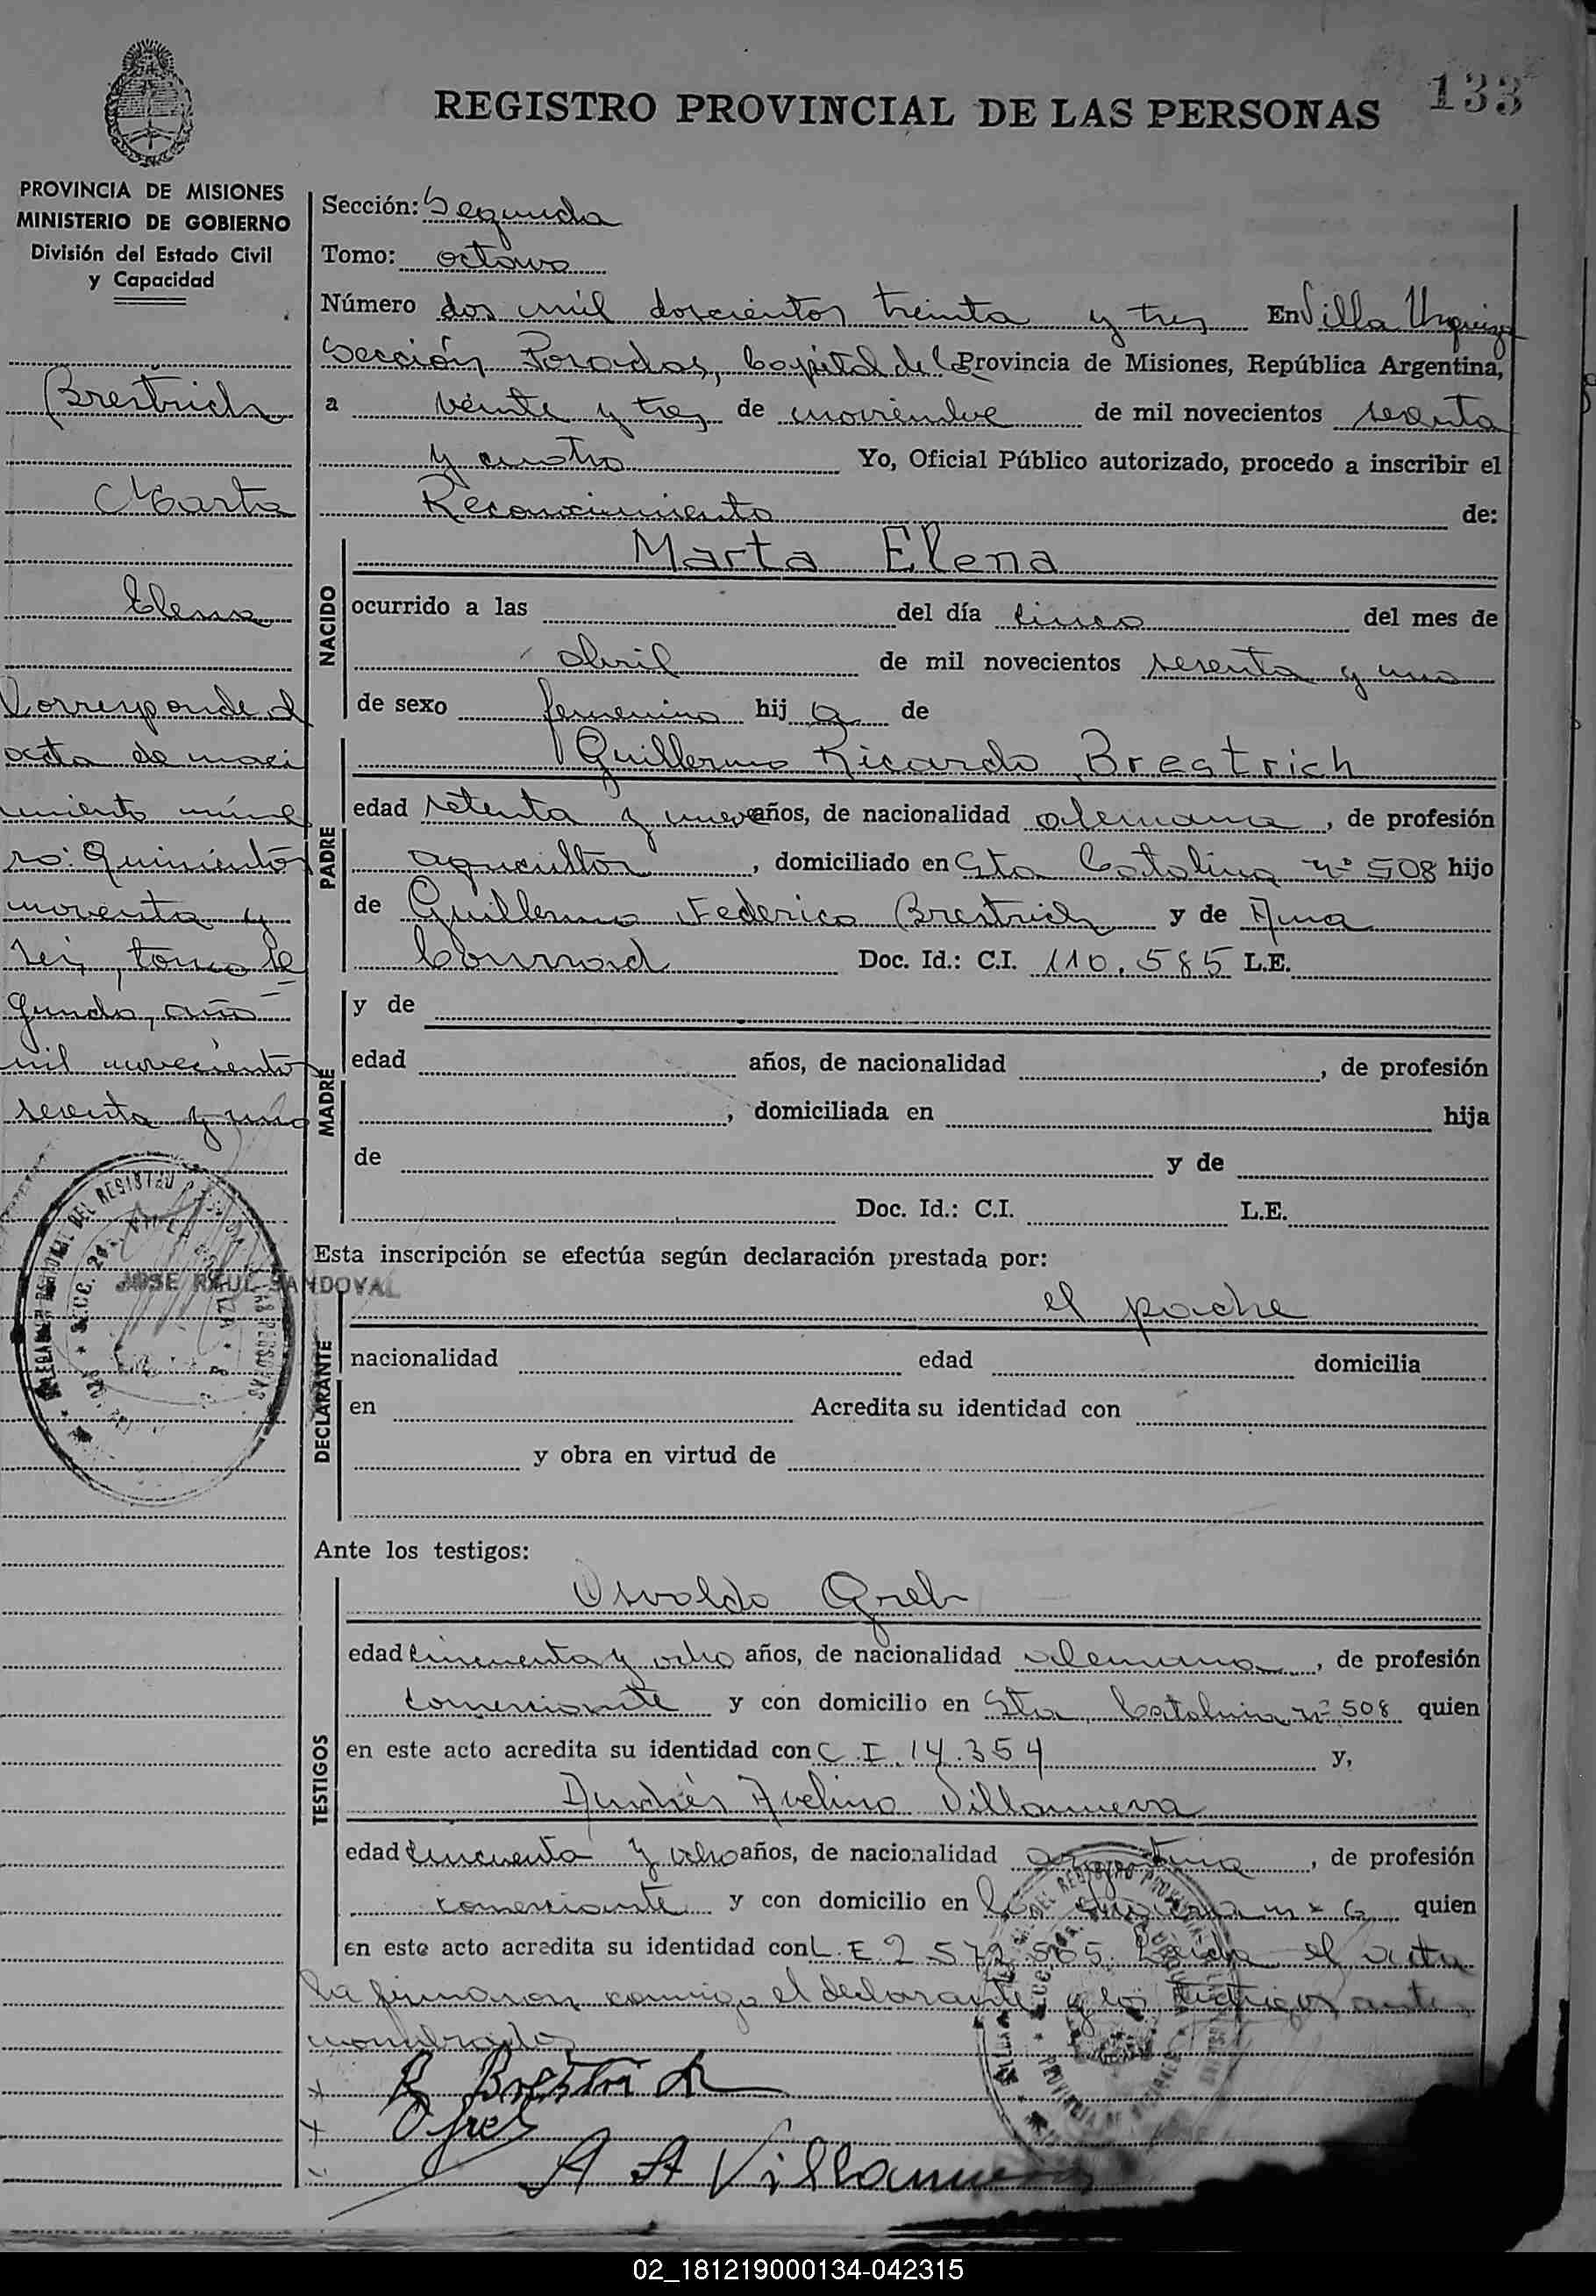 133
REGISTRO PROVINCIAL DE LAS PERSONAS
PROVINCIA DE MISIONES
MINISTERIO DE GOBIERNO
División del Estado Civil
y Capacidad
Brestrich
Marta
Elena
Corresponde al
acta de naci
miento núme
ro: Quinientos
noventa y
seis, tomo se
gundo, año
mil novecientos
sesenta y uno
JOSE RAUL SANDOVAL
Sección: Segunda
Tomo: octavo
Número dos mil doscientos treinta y tres En Villa Urquiza
Sección Posadas, Capital de la Provincia de Misiones, República Argentina,
a veinte y tres de noviembre de mil novecientos sesenta
y cuatro Yo, Oficial Público autorizado, procedo a inscribir el
Reconocimiento de:
NACIDO
Marta Elena
ocurrido a las del día cinco del mes de
abril de mil novecientos sesenta y uno
de sexo femenino hij a de
PADRE
Guillermo Ricardo Brestrich
edad setenta y nueve años, de nacionalidad alemana, de profesión
agricultor, domiciliado en Sta Catalina nº 508 hijo
de Guillermo Federico Brestrich y de Ana
Conrrad Doc. Id.: C.I. 110.585 L.E.
MADRE
y de
edad años, de nacionalidad , de profesión
, domiciliada en hija
de y de
Doc. Id.: C.I. L.E.
Esta inscripción se efectúa según declaración prestada por:
DECLARANTE
el padre
nacionalidad edad domicilia
en Acredita su identidad con
y obra en virtud de
Ante los testigos:
TESTIGOS
Osvaldo Greb
edad cincuenta y ocho años, de nacionalidad alemana, de profesión
comerciante y con domicilio en Sta Catalina nº 508 quien
en este acto acredita su identidad con C.I. 14.354 y,
Andrés Avelino Villanueva
edad cincuenta y ocho años, de nacionalidad argentina, de profesión
comerciante y con domicilio en quien
en este acto acredita su identidad con L.E. 2.572.505. Leída el acta
la firmaron conmigo el declarante y los testigos antes
nombrados
R Brestrich
O Greb
A A Villanueva
02_181219000134-042315